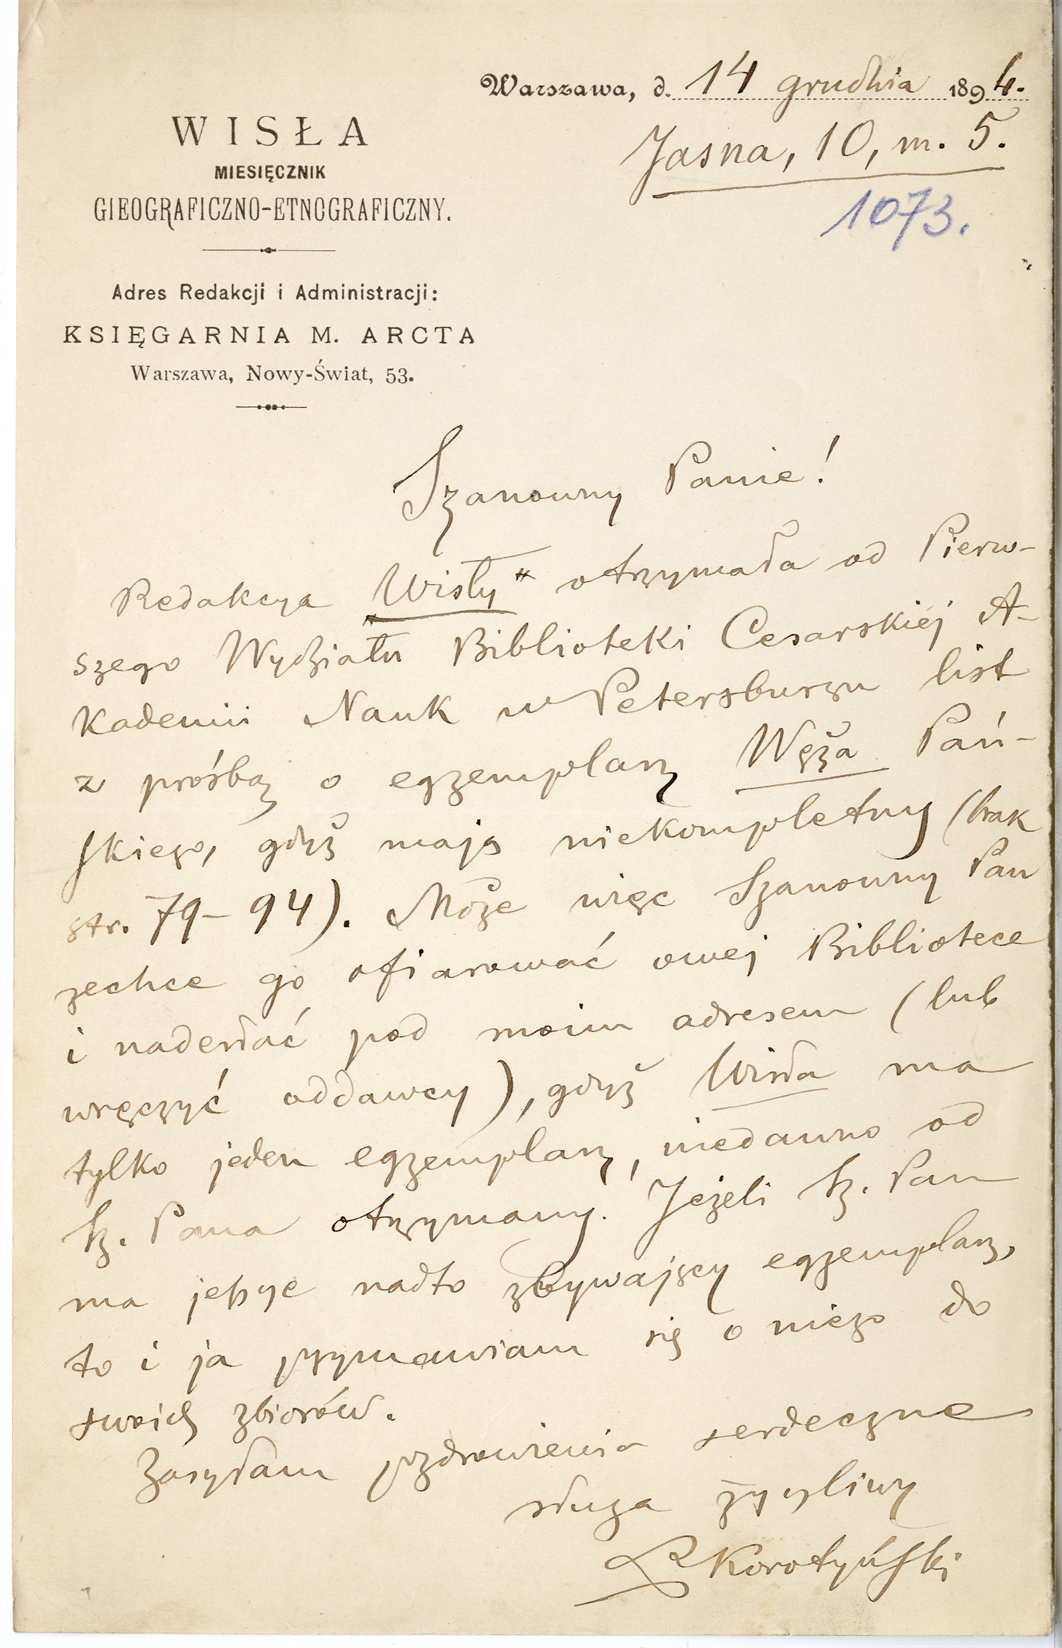 Warszawa, d. 14 grudnia 1894.
WISŁA
MIESIĘCZNIK
GIEOGRAFICZNO-ETNOGRAFICZNY.
Jasna, 10, m. 5.
1073.
Adres Redakcji i Administracji:
KSIĘGARNIA M. ARCTA
Warszawa, Nowy-Świat, 53.
Szanowny Panie!
Redakcya „Wisły" otrzymała od Pierw-
szego Wydziału Biblioteki Cesarskiéj A-
kademii Nauk w Petersburgu list
z prośbą o egzemplarz Węża Pań-
skiego, gdyż mają niekompletny (brak
str. 79–94). Może więc Szanowny Pan
zechce go ofiarować owej Bibliotece
i nadesłać pod moim adresem (lub
wręczyć oddawcy), gdyż Wisła ma
tylko jeden egzemplarz, niedawno od
Sz. Pana otrzymany. Jeżeli Sz. Pan
ma jeszcze nadto zbywający egzemplarz,
to i ja przymawiam się o niego do
swoich zbiorów.
Zasyłam pozdrowienia serdeczne
sługa życzliwy
L Korotyński